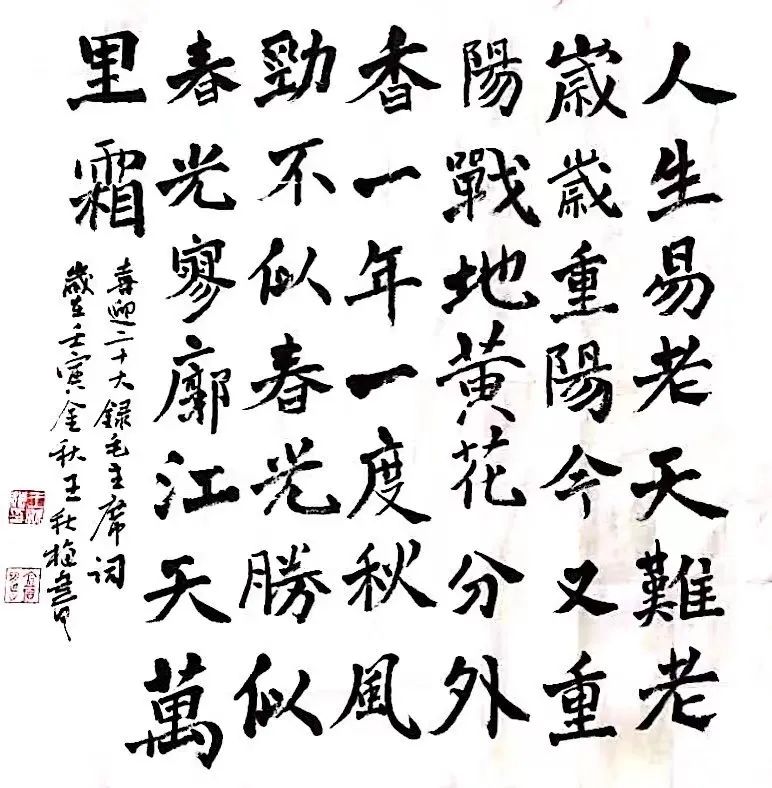 人生易老天難老
歲歲重陽今又重
陽戰地黄花分外
香一年一度秋風
勁不似春光勝似
春光寥廓江天萬
里霜
喜迎二十大録毛主席词
歲在壬寅金秋王秋梅